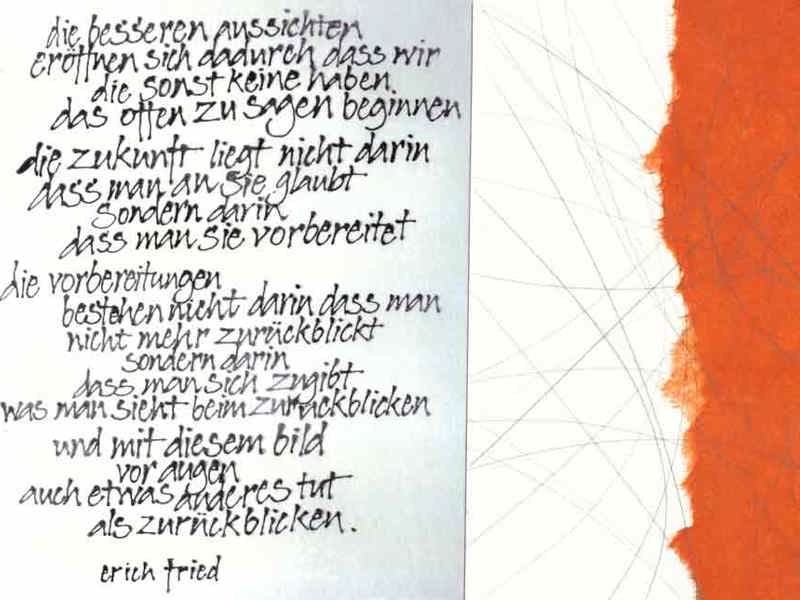 die besseren aussichten
eröffnen sich dadurch dass wir
die sonst keine haben.
das offen zu sagen beginnen
die zukunft liegt nicht darin
dass man an sie glaubt
sondern darin
dass man sie vorbereitet
die vorbereitungen
bestehen nicht darin dass man
nicht mehr zurückblickt
sondern darin
dass man sich zugibt
was man sieht beim zurückblicken
und mit diesem bild
vor augen
auch etwas anderes tut
als zurückblicken.
erich fried